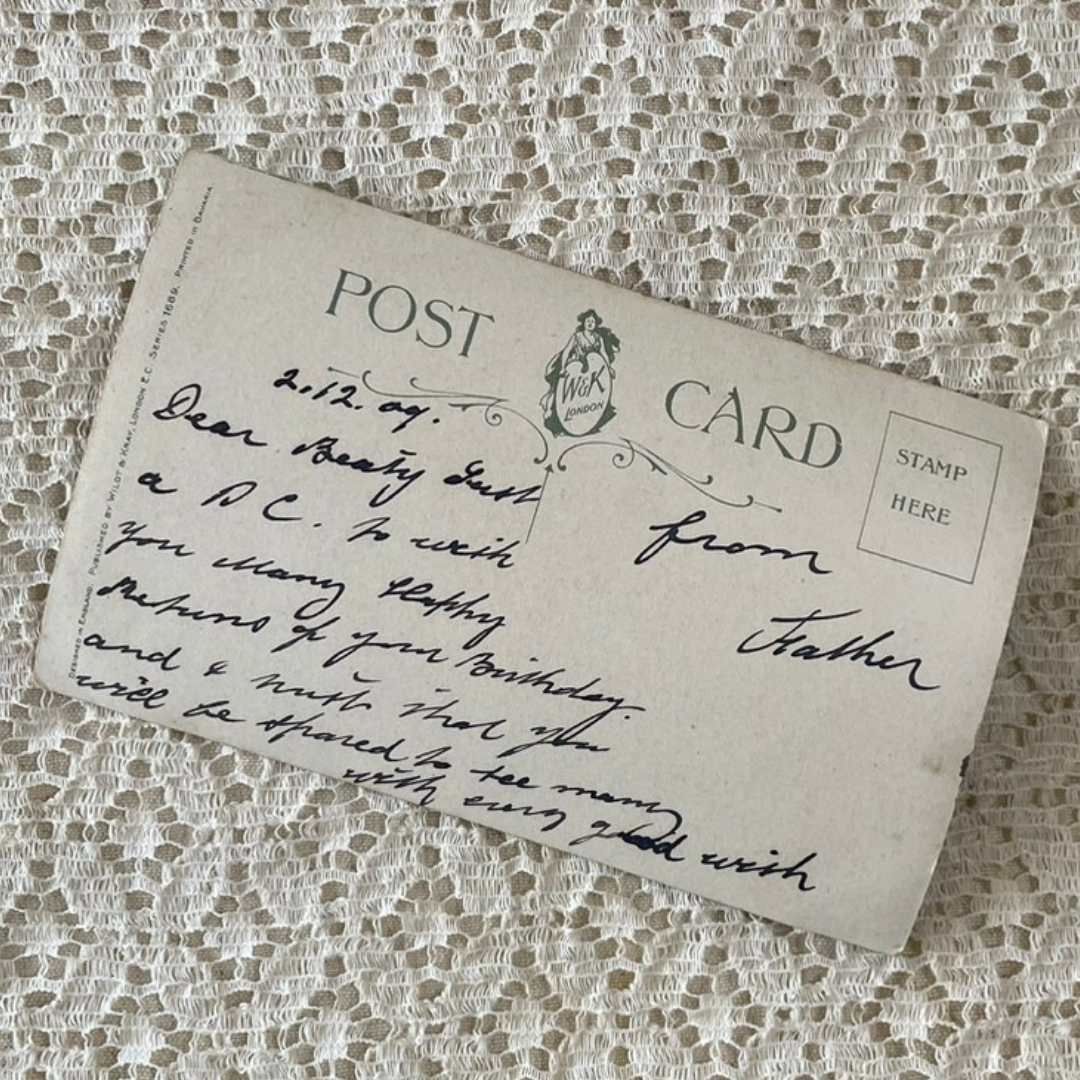 POST CARD
W&K
LONDON
STAMP
HERE
2.12.09.
Dear Beaty Just
a P C. to wish
you Many Happy
Returns of your Birthday.
and & trust that you
will be spared to see many
with every good wish
from
Father
DESIGNED IN ENGLAND. PUBLISHED BY WILDT & KRAY, LONDON. E.C. SERIES 1689. PRINTED IN BAVARIA